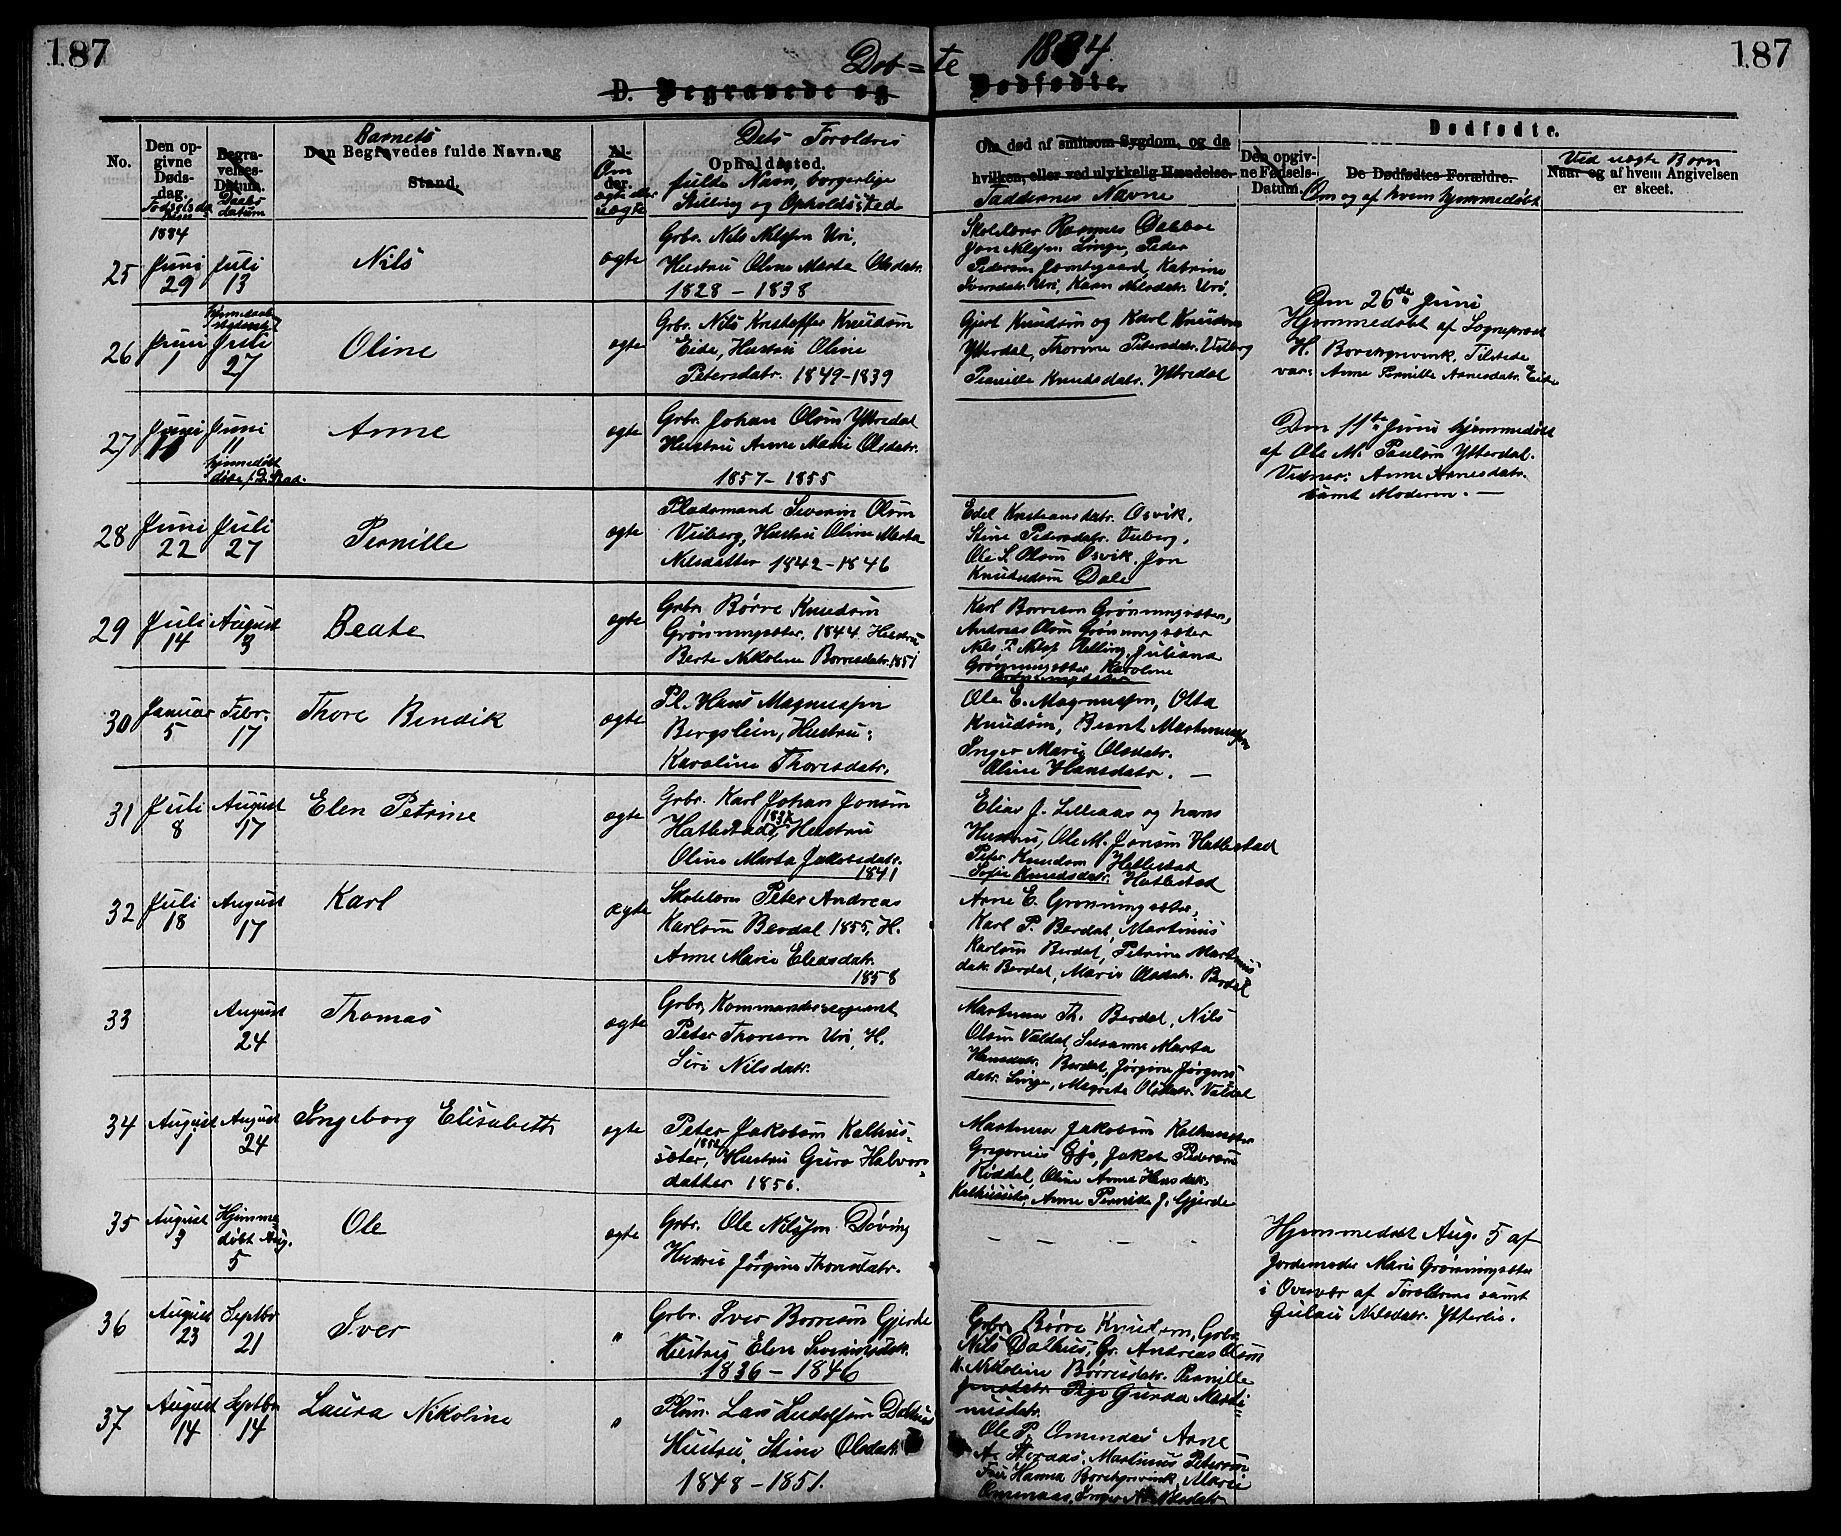 187
Døb=te 1884.
187
D. Begravede og Dødfødte.
No.
Den opgivne Dødsdag. Fødselsdatum
Begravelses-Datum. Daabsdatum
Barnets
Den Begravedes fulde Navn og Stand.
Alder. Om ægte eller uægte
Dets Forældres
Opholdssted.
fulde Navn, borgerlige
Stilling og Opholdssted
Om død af smitsom Sygdom, og da
hvilken, eller ved ulykkelig Hændelse.
Faddernes Navne
Dødfødte.
Den opgivne Fødsels-Datum.
De Dødfødtes Forældre.
Om og af hvem hjemmedøbt
Ved uægte Børn
Naar og af hvem Angivelsen er skeet.
1884
25 Juni 29 Juli 13 Nils ægte
Grbr. Nils Nilssen Uri,
Hustru Oline Marta Olsdatr.
1828 – 1838
Skolelærer Rasmus Døbbe
Jon Nilssen Linge, Peder
Pedersen Jamtegaard, Katrine
Iversdatr. Uri, Karn Nilsdatr. Uri.
26 Juni 1 hjemmedøbt stadfæstet Juli 27 Oline ægte
Grbr. Nils Kristoffer Knudsøn
Eide, Hustru Oline
Petersdatr. 1849-1839
Gjert Knudsøn og Karl Knudsøn
Ytterdal, Thorine Petersdatr. Viberg
Pernille Knudsdatr. Yttredal
Den 26de Juni
Hjemmedøbt af Sogneprest
H. Borchgrevink. Tilstede
var: Anne Pernille Arnesdatr. Eide
27 Juni 11 Juni 11 hjemmedøbt Anne ægte
Grbr. Johan Olsøn Yttredal
Hustru Anne Marie Olsdatr.
1857 – 1855
Den 11te Juni hjemmedøbt
af Ole M. Paulsøn Ytterdal.
Vidner: Anne Arnesdatr.
samt Moderen. –
28 Juni 22 Juli 27 Pernille ægte
Pladsmand Severin Olsøn
Viiberg, Hustru Oline Marta
Nilsdatter 1842 – 1846
Edel Kristiansdatr. Osvik.
Stine Pedersdatr. Viiberg.
Ole S. Olsøn Osvik. Jon
Knudsøn Dale
29 Juli 14 August 3 Beate ægte
Grbr. Børre Knudsøn
Grønningsæter, 1844. Hustru
Berte Nikoline Børresdatr. 1851
Karl Børresøn Grønningsæter,
Andreas Olsøn Grønningsæter
Nils P. Nilss. Relling, Juliana
Grønningsæter, Karoline
Grønningsæter
30 Januar 5 Febr. 17 Thore Bendik ægte
Pl. Hans Magnussen
Bergslien, Hustru:
Karoline Thoresdatr.
Ole E. Magnussen, Otta
Knudsøn, Bernt Martinussen
Inger Marie Olsdatr.
Oline Hansdatr. –
31 Juli 8 August 17 Elen Petrine ægte
Grbr. Karl Johan Jonsøn
Hatlestad, Hustru
Oline Marta Jakobsdatr.
1841
Elias J. Lilleaas og hans
Hustru, Ole M. Jonsøn Hatlestad
Peter Knudsøn Hatlestad
Sofie Knudsdatr. Hatlestad
32 Juli 18 August 17 Karl ægte
Skolelærer Peter Andreas
Karlsøn Berdal 1855, H.
Anne Marie Eliasdatr.
1858
Arne E. Grønningsæter,
Karl P. Berdal, Martinus
Karlsøn Berdal, Petrine Martinusdatr. Berdal, Marie Olsdatr. Berdal
33 August 24 Thomas ægte
Grbr, Kommandersergeant
Peter Thoresen Uri, H.
Siri Nilsdatr.
Martinus Th. Berdal, Nils
Olsøn Valdal, Susanne Marta
Hansdatr. Berdal, Jørgine Jørgensdatr. Linge, Magrete Olsdatr. Valdal
34 August 1 August 24 Ingeborg Elisabeth ægte
Peter Jakobsøn Kalhussæter, 1852 Hustru Guro Halvorsdatter 1856.
Martinus Jakobsøn Kalhussæter
Gregorius Gjr, Jakob Pedersøn
Riddal, Oline Anna Hansdatr.
Kalhussæter, Anne Pernille J. Gjerde
35 August 3 Hjemmedøbt Aug. 5 Ole ægte
Grbr. Ole Nilssøn Døving
Hustru Jørgine Thomsdatr.
– – – –
Hjemmedøbt Aug. 5 af
Jordemoder Marie Grønningsæter
i Overvær af Forældrene samt
Gulau Nilsdatr. Ytterli.
36 August 23 Septbr 21 Iver "
Grbr. Iver Børresøn Gjerde
Hustru Elen Severinsdatr.
1836 – 1846
Grbr. Børre Knudsøn, Grbr.
Nils Dalhus, Gr. Andreas Olsøn
H. Nikoline Børresdatr. Pernille
Jonsdatr. Gjr Gurda Martinusdatr.
37 August 14 Septbr 14 Laura Nikoline "
Plsm. Lars Ludolfsøn Dalhus
Hustru, Stine Olsdatr.
1848 – 1851.
Ole P. Omenaas Arne
A. Storaas, Martinus Petersøn
Frue Hanna Borchgrevink, Marie
Omenaas, Inger A. Nilsdatr